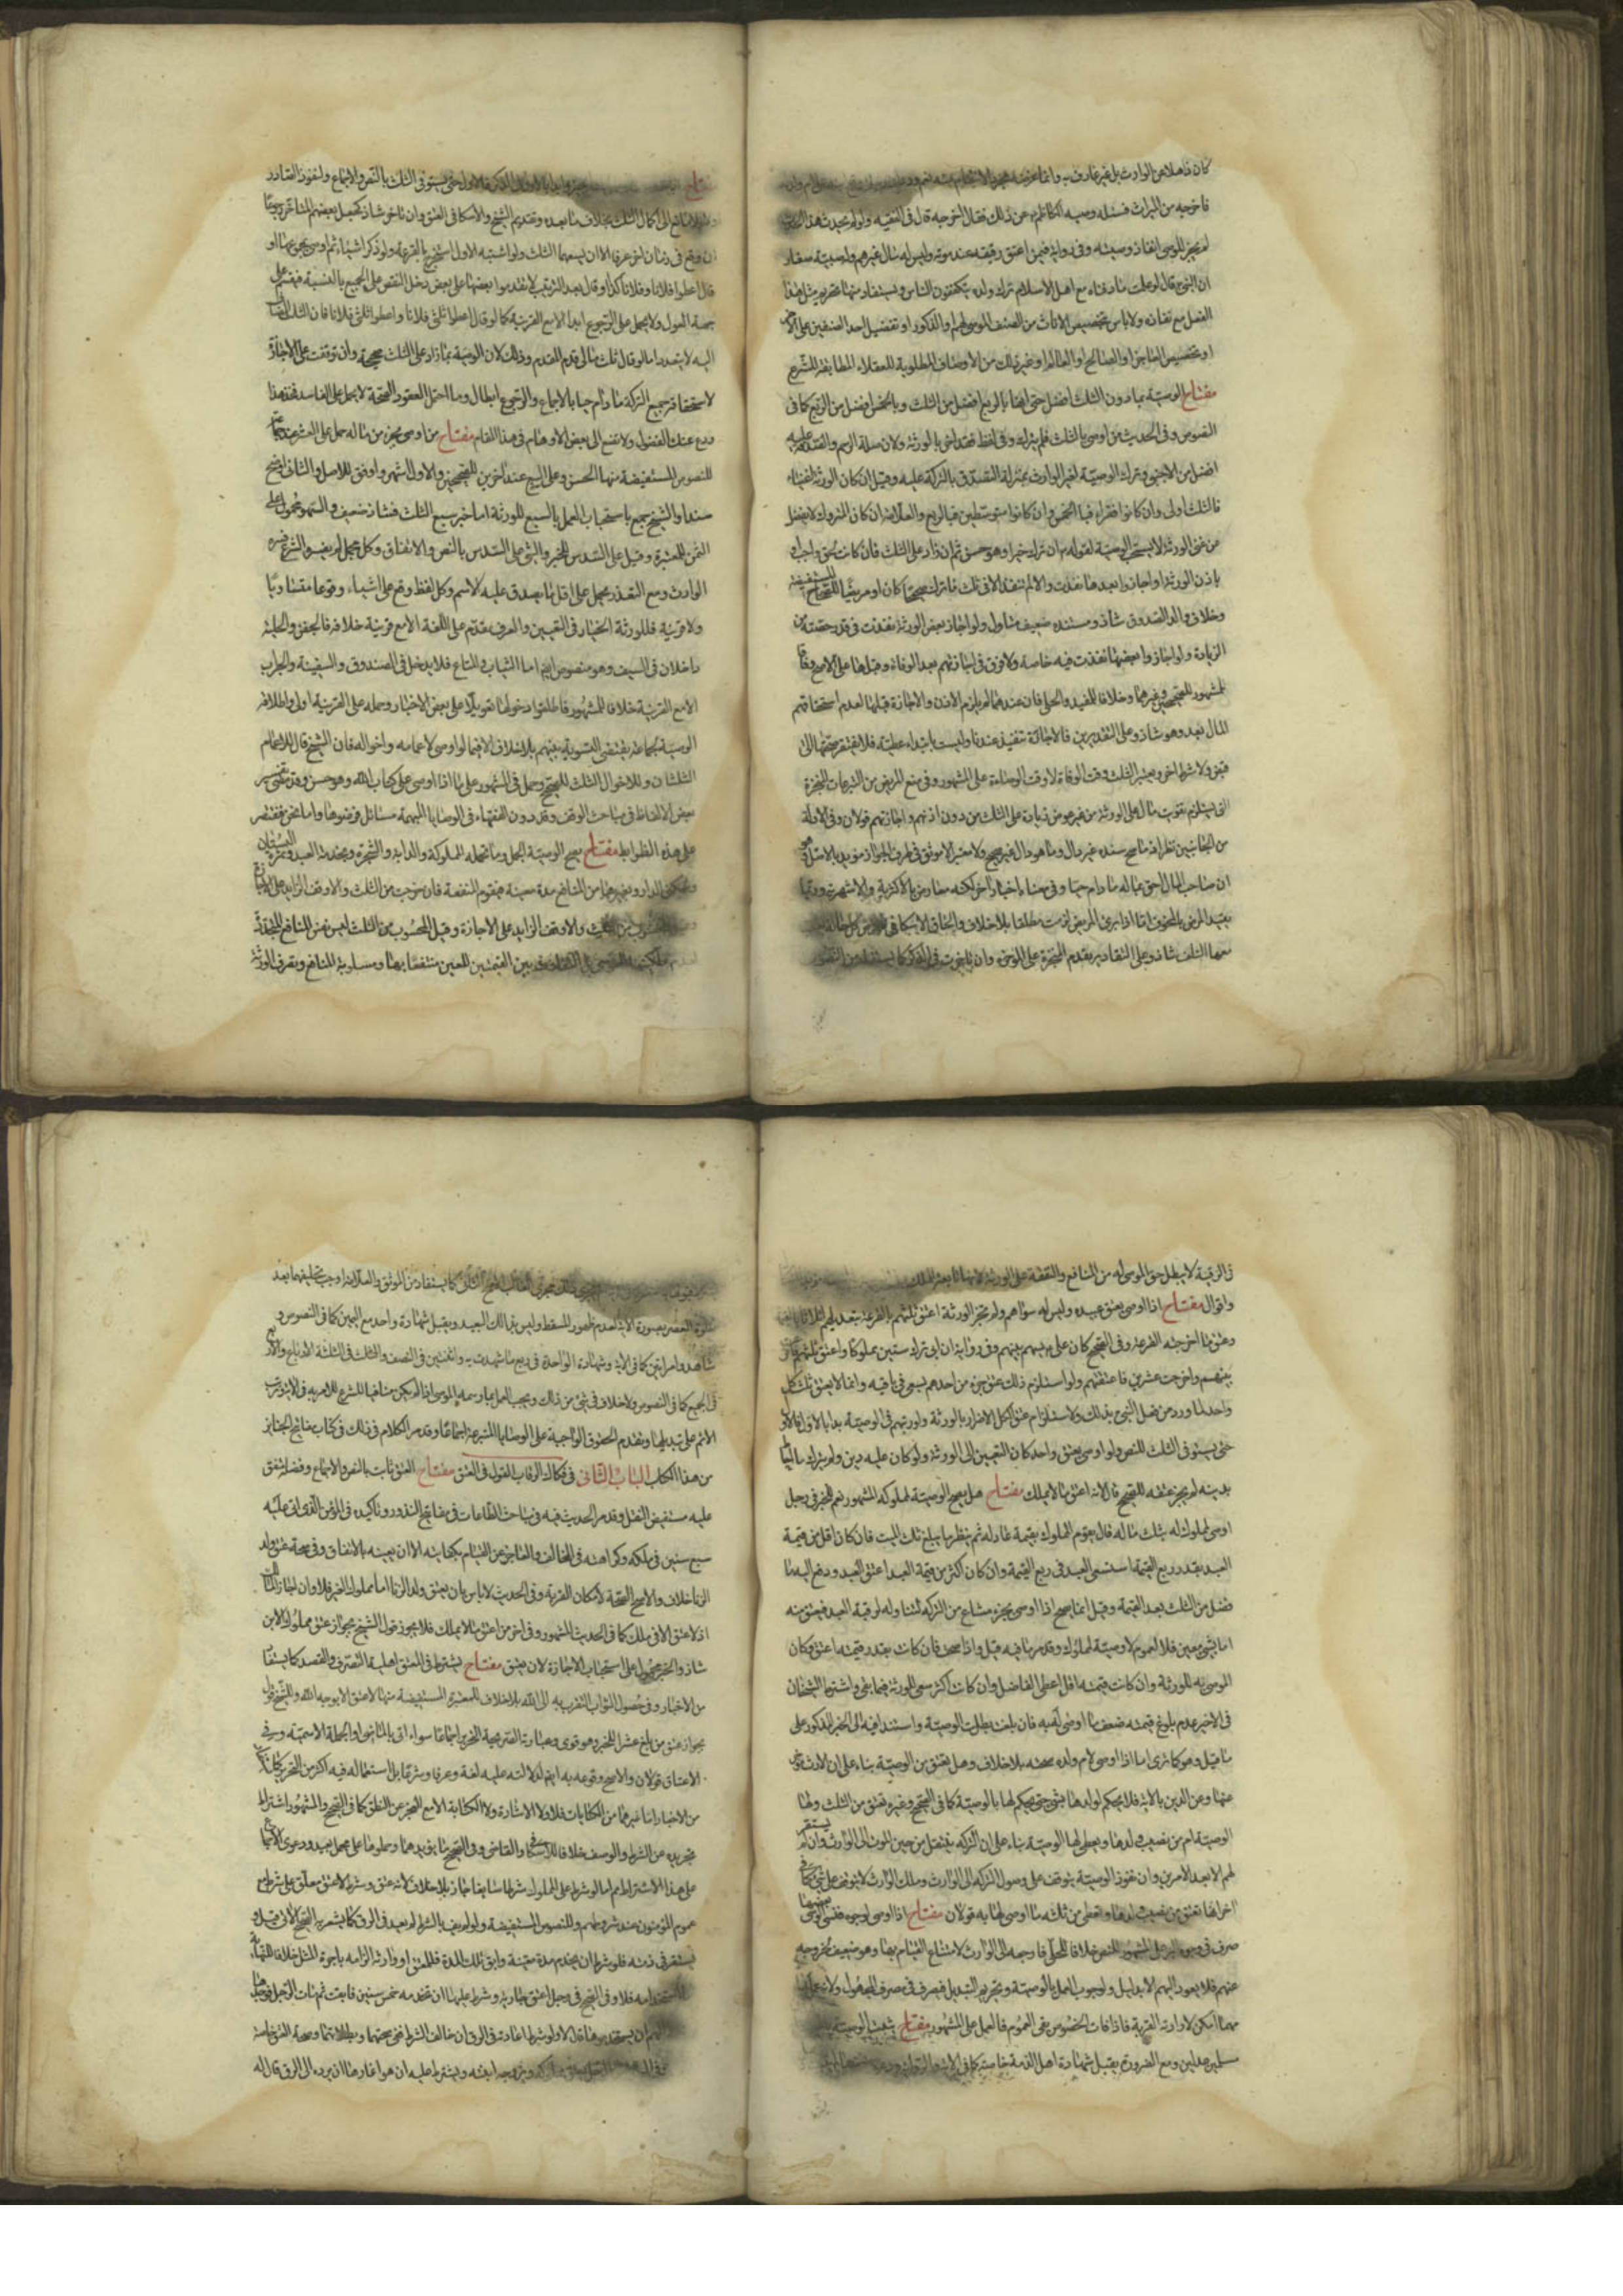 كان ذاهلا عن الوارث بل غير عارف به وانما غرضه مجرد الانتقام منه نعم
فاخرجه من الميراث فسئله وصيه الكاظم عن ذلك فقال اخرجه قال في الفقيه ولو لم يحدث هذا
لم يجز للوصي انفاذ وصيته وفي رواية فيمن اعتق رقيقه عند موته وليس له مال غيرهم وله صبية صغار
ان النبي قال لو علمت ما دفناه مع اهل الاسلام ترك ولده يتكففون الناس ويستفاد منها تحريم مثل هذا
الفعل مع نفاذه ولا باس بتخصيص الاناث من الصنف الموصى لهم او الذكور او تفضيل احد الصنفين على الاخر
او تخصيص العاجز او الصالح او العالم او غير ذلك من الاوصاف المطلوبة للعقلاء المطابقة للشرع
مفتاح الوصية بما دون الثلث افضل حتى انها بالربع افضل من الثلث وبالخمس افضل من الربع كما في
النصوص وفي الحديث من اوصى بالثلث فلم يترك وفي لفظ فقد اضر بالورثة ولان صلة الرحم والصدقة عليه
افضل من الاجنبي وترك الوصية لغير الوارث بمنزلة التصدق بالتركة عليه وقيل ان كان الورثة اغنياء
فالثلث اولى وان كانوا فقراء فبالخمس وان كانوا متوسطين فبالربع والعلامة ان كان المتروك لا يفضل
عن غنى الورثة لا يستحب الوصية لقوله ان ترك خيرا وهو حسن ثم ان زاد على الثلث فان كانت بحق واجب او
باذن الورثة او اجازوا بعدها نفذت والا لم تنفذ الا في ثلث ما ترك صحيحا كان او مريضا للصحاح المستفيضة
وخلاف والد الصدوق شاذ ومستنده ضعيف متاول ولو اجاز بعض الورثة نفذت في قدر حصته من
الزيادة ولو اجازوا بعضها نفذت فيه خاصة ولا فرق في اجازتهم بعد الوفاة وقبلها على الاصح وفاقا
للمشهور للصحيحين وغيرهما وخلافا للمفيد والحلي فان عندهما لم يلزم الاذن والاجازة قبلها لعدم استحقاقهم
المال بعد وهو شاذ وعلى التقديرين فالاجازة تنفيذ عندنا وليست بابتداء عطية فلا تفتقر صحتها الى
قبض ولا شرط اخر ويعتبر الثلث وقت الوفاة لا وقت الوصاءة على المشهور وفي منع المريض من التبرعات المنجزة
التي يستلزم تفويت مال على الورثة من غير عوض زيادة على الثلث من دون اذنهم واجازتهم قولان وفي الادلة
من الجانبين نظر اذ ما صح سنده غير دال وما هو دال غير صحيح ولا معتبر الا موثق في طرف الجواز مؤيد بالاصل وهو
ان صاحب المال احق بماله ما دام حيا وفي معناه اخبار اخر لكنه معارض بالاكثرية والاشهرية وربما
يقيد المرض بالمخوف اما اذا برئ المريض لزمت مطلقا بلا خلاف والحاق الاسكافي
معها التلف شاذ وعلى التقادير يقدم المنجزة على المؤخرة وان تاخرت في الذكر كما يستفاد من النصوص
مفتاح بالاول في الذكر فالاول حتى يستوفي الثلث بالنص والاجماع ولنفوذ الصادر
الى اكمال الثلث بخلاف ما بعده وتقديم الشيخ والاسكافي العتق وان تاخر شاذ كجعل بعضهم المتاخر رجوعا
ان وقع في زمان اخر عرفا الا ان يسعهما الثلث ولو اشتبه الاول استخرج بالقرعة ولو ذكر اشياء ثم اوصى بمجموعها او
قال اعطوا فلانا وفلانا كذا وقال بعد الترتيب لا تقدموا بعضها على بعض دخل النقص على الجميع بالنسبة فيقسم على
جهة العول ولا يحمل على الرجوع ابدا الا مع القرينة كما لو قال اعطوا ثلثي فلانا واعطوا ثلثي فلانا فان الثلث المضاف
اليه لا يتعدد اما لو قال ثلث مالي قدم المقدم وذلك لان الوصية بما زاد على الثلث صحيحة وان توقفت على الاجازة
لاستحقاقه جميع التركة ما دام حيا بالاجماع والرجوع ابطال وما احتمل العقود الصحة لا يحمل على الفاسد فخذ هذا
ودع عنك الفضول ولا تصغ الى بعض الاوهام في هذا المقام مفتاح من اوصى بجزء من ماله حمل على العشر عند جماعة
للنصوص المستفيضة منها الحسن وعلى السبع عند اخرين للصحيحين والاول اشهر واوفق للاصل والثاني اوضح
سندا والشيخ جمع باستحباب العمل بالسبع للورثة اما خبر سبع الثلث فشاذ ضعيف والسهم محمول على
الثمن للمعتبرة وقيل على السدس للخبر والشيء على السدس بالنص والاتفاق وكل مجمل لم يفسره الشرع فسره
الوارث ومع التعذر يحمل على اقل ما يصدق عليه الاسم وكل لفظ وقع على اشياء وقوعا متساويا
ولا قرينة فللورثة الخيار في التعيين والعرف مقدم على اللغة الا مع قرينة خلافه فالجفن والحلية
داخلان في السيف وهو منصوص ايضا اما الثياب والمتاع فلا يدخل في الصندوق والسفينة والجراب
الا مع القرينة خلافا للمشهور فاطلقوا دخولها تعويلا على بعض الاخبار وحمله على القرينة اولى واطلاق
الوصية لجماعة يقتضي التسوية بينهم بلا خلاف الا فيما لو اوصى لاعمامه واخواله فان الشيخ قال للاعمام
الثلثان وللاخوال الثلث للصحيح وحمل في المشهور على ما اذا اوصى على كتاب الله وهو حسن وقد مضى تفسير
بعض الالفاظ في مباحث الوقف وقد دون الفقهاء في الوصايا المبهمة مسائل فرضوها واما نحن فنقتصر
على هذه الظوابط مفتاح تصح الوصية بالحمل وما تحمله المملوكة والدابة والشجرة وبخدمة العبد وثمرة البستان
وسكنى الدار وغيرها من المنافع مدة معينة فتقوم المنفعة فان خرجت من الثلث والا وقف الزايد على الاجازة
والا وقف الزايد على الاجازة وقيل المحسوب من الثلث ليس نفس المنافع المتجددة
بين القيمتين للعين منتفعا بها ومسلوبة المنافع وتصرف الورثة
في الرقبة لا يبطل حق الموصى له من المنافع والنفقة على الورثة لانها تابعة للملك
واقوال مفتاح اذا اوصى بعتق عبيده وليس له سواهم ولم يجز الورثة اعتق ثلثهم بالقرعة بتعديلهم اثلاثا
وعتق ما اخرجته القرعة وفي الصحيح كان علي يسهم بينهم وفي رواية ان ابي ترك ستين مملوكا واعتق ثلثهم فاقرعت
بينهم واخرجت عشرين فاعتقتهم ولو استلزم ذلك عتق جزء من احدهم يسعى في باقيه وانما لا يعتق ثلث كل
واحد لما ورد من فعل النبي بذلك ولاستلزام عتق الكل الاضرار بالورثة ولو رتبهم في الوصية بدا بالاول فالاول
حتى يستوفي الثلث للنص ولو اوصى بعتق واحد كان التعيين الى الورثة ولو كان عليه دين ولم يترك ما يحيط
بدينه لم يجز عتقه للصحيح ولانه اعتق ما لا يملك مفتاح هل تصح الوصية لمملوكه المشهور نعم للخبر في رجل
اوصى لمملوك له بثلث ماله قال يقوم المملوك بقيمة عادلة ثم ينظر ما يبلغ ثلث الميت فان كان اقل من قيمة
العبد بقدر ربع القيمة استسعى العبد في ربع القيمة وان كان اكثر من قيمة العبد اعتق العبد ودفع اليه ما
فضل من الثلث بعد القيمة وقيل انما يصح اذا اوصى بجزء مشاع من التركة لتناوله لرقبة العبد فيعتق منه
اما بشيء معين فلا لعموم لا وصية لمملوك وقد مر ما فيه قيل واذا صحت فان كانت بقدر قيمته اعتق وكان
الموصى به للورثة وان كانت قيمته اقل اعطي الفاضل وان كانت اكثر سعى للورثة فيما بقي واشترط الشيخان
في الاخير عدم بلوغ قيمته ضعف ما اوصى له به فان بلغت بطلت الوصية واستند فيه الى الخبر المذكور على
ما قيل وهو كما ترى اما اذا اوصى لام ولده صحت بلا خلاف وهل تعتق من الوصية بناء على ان الارث مؤخر
عنها وعن الدين بالاية فلا يحكم لولدها بشيء حتى يحكم لها بالوصية كما في الصحيح وغيره تعتق من الثلث ولها
الوصية ام من نصيب ولدها وتعطى لها الوصية بناء على ان التركة ينتقل من حين الموت الى الوارث وان لم يستقر
لهم الا بعد الامرين وان نفوذ الوصية يتوقف على وصول التركة الى الوارث وملك الوارث لا يتوقف على شيء كما في
اخر انها تعتق من نصيب ولدها وتعطى من ثلثه ما اوصى لها به قولان مفتاح اذا اوصى لوجوه فنسي الوصي بعضها
صرف في وجوه البر على المشهور للنص خلافا للحلي فاوجبه الى الوارث لامتناع القيام بها وهو ضعيف لخروجه
عنهم فلا يعود اليهم الا بدليل ولوجوب العمل بالوصية وتحريم التبديل فيصرف في مصرف المجهول ولان
مهما امكن لارادته القربة فاذا فات الخصوص بقي العموم فالعمل على المشهور مفتاح يثبت الوصية
مسلمين عدلين ومع الضرورة يقبل شهادة اهل الذمة خاصة كما في الاية
كما يستفاد من الموثق والعلامة اوجب تحليفهما بعد
صلوة العصر بصورة الاية لعدم ظهور المسقط وليس بذلك البعيد ويقبل شهادة واحد مع اليمين كما في النصوص و
شاهد وامراتين كما في الاية وشهادة الواحدة في ربع ما شهدت به واثنتين في النصف والثلث في الثلثة الارباع والاربع
في الجميع كما في النصوص ولا خلاف في شيء من ذلك ويجب العمل بما رسمه الموصي اذا لم يكن منافيا للشرع للامر به في الاية وترتب
الاثم على تبديلها وتقدم الحقوق الواجبة على الوصايا المتبرعة اجماعا وقد مر الكلام في ذلك في كتاب مفاتيح الجنايز
من هذا الكتاب الباب الثاني في فكاك الرقاب القول في العتق مفتاح العتق ثابت بالنص والاجماع وفضله متفق
عليه مستفيض النقل وقد مر الحديث فيه في مباحث الطاعات في مفاتيح النذور وتاكيده في المؤمن الذي اتى عليه
سبع سنين في ملكه وكراهته في المخالف والعاجز عن القيام بكفايته الا ان يعينه بالانفاق وفي صحة عتق ولد
الزنا خلاف والاصح الصحة لامكان القربة وفي الحديث لا باس بان يعتق ولد الزنا اما مملوك الغير فلا وان اجاز المالك
اذ لا عتق الا في ملك كما في الحديث المشهور وفي اخر من اعتق ما لا يملك فلا يجوز وقول الشيخ بجواز عتق مملوك الابن
شاذ والخبر محمول على استحباب الاجازة لان يعتق مفتاح يشترط في المعتق اهلية التصرف والقصد كما يستفاد
من الاخبار وفي حصول الثواب التقرب به الى الله بلا خلاف للمعتبرة المستفيضة منها لا عتق الا لوجه الله وللشيخ قول
بجواز عتق من بلغ عشرا للخبر وهو قوي وعبارته الصريحة التحرير اجماعا سواء اتى بالماضي او الجملة الاسمية وفي
الاعتاق قولان والاصح وقوعه به ايضا لدلالته عليه لغة وعرفا وشرعا بل استعماله فيه اكثر من التحرير كما يظهر
من الاخبار اما غيرهما من الكنايات فلا ولا الاشارة ولا الكتابة الا مع العجز عن النطق كما في الصحيح والمشهور اشتراط
تجريده عن الشرط والوصف خلافا للاسكافي والقاضي وفي الصحيح ما يؤيدهما وحملوها على محمل بعيد ودعوى الاجماع
على هذا الاشتراط اما لو شرط على المملوك شرطا سايغا جاز بلا خلاف لانه عتق وشرط لا عتق معلق على شرط مع
عموم المؤمنون عند شروطهم وللنصوص المستفيضة ولو لم يف بالشرط لم يعد في الرق كما يشعر به الصحيح الاتي
يستقر في ذمته فلو شرط ان يخدم مدة معينة وابق تلك المدة فللمعتق او وارثه الزامه باجرة المثل خلافا للنهاية
فلا وفي الصحيح في رجل اعتق جاريته وشرط عليها ان تخدمه خمس سنين فابقت ثم مات الرجل فوجدها
ان يستخدموها قال لا ولو شرط اعادته في الرق ان خالف الشرط ففي صحتهما وبطلانهما وصحة العتق خاصة
ويزوجه ابنته ويشترط عليه ان هو اغارها ان يرده الى الرق قال له